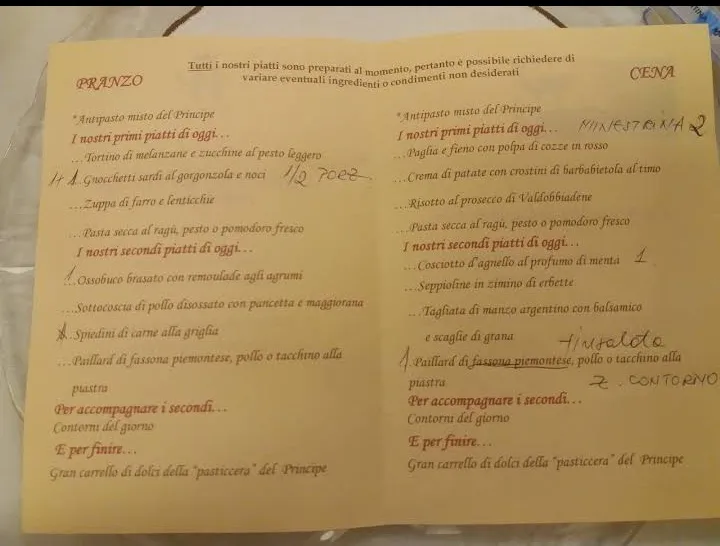 Tutti i nostri piatti sono preparati al momento, pertanto è possibile richiedere di
variare eventuali ingredienti o condimenti non desiderati
PRANZO
*Antipasto misto del Principe
I nostri primi piatti di oggi...
...Tortino di melanzane e zucchine al pesto leggero
1+1 Gnocchetti sardi al gorgonzola e noci 1/2 PORZ.
...Zuppa di farro e lenticchie
...Pasta secca al ragù, pesto o pomodoro fresco
I nostri secondi piatti di oggi...
1...Ossobuco brasato con remoulade agli agrumi
...Sottocoscia di pollo disossato con pancetta e maggiorana
...Spiedini di carne alla griglia
...Paillard di fassona piemontese, pollo o tacchino alla
piastra
Per accompagnare i secondi...
Contorni del giorno
E per finire...
Gran carrello di dolci della "pasticcera" del Principe
CENA
*Antipasto misto del Principe
I nostri primi piatti di oggi... MINESTRINA 2
...Paglia e fieno con polpa di cozze in rosso
...Crema di patate con crostini di barbabietola al timo
...Risotto al prosecco di Valdobbiadene
...Pasta secca al ragù, pesto o pomodoro fresco
I nostri secondi piatti di oggi...
...Cosciotto d'agnello al profumo di menta 1
...Seppioline in zimino di erbette
...Tagliata di manzo argentino con balsamico
e scaglie di grana
1 Paillard di fassona piemontese, pollo o tacchino alla
piastra 2. CONTORNO
Per accompagnare i secondi...
Contorni del giorno
E per finire...
Gran carrello di dolci della "pasticcera" del Principe